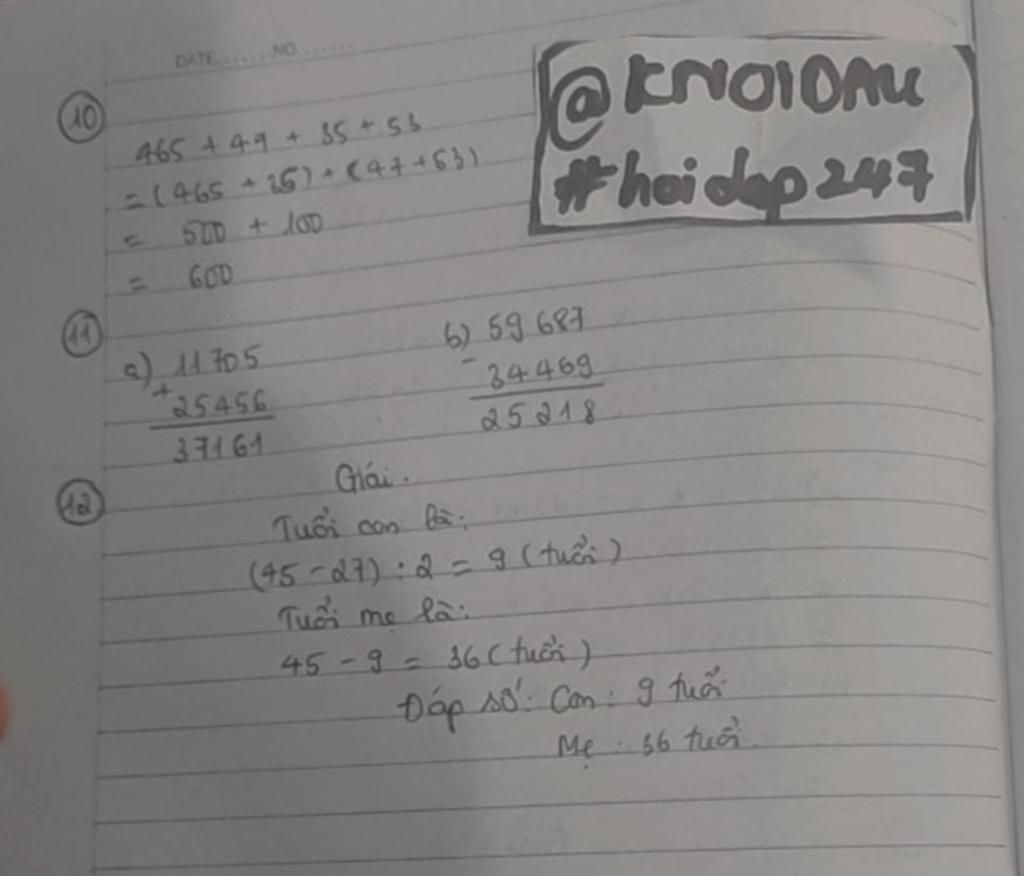 DATE......NO......
@KNOIDAU
#hoidap247
10
465 + 47 + 35 + 53
= (465 + 35) + (47 + 53)
= 500 + 100
= 600
11
a) 11705
+
25456
37161
b) 59687
-
34469
25218
12
Giải.
Tuổi con là:
(45 - 27) : 2 = 9 (tuổi)
Tuổi mẹ là:
45 - 9 = 36 (tuổi)
Đáp số: Con: 9 tuổi
Mẹ: 36 tuổi.